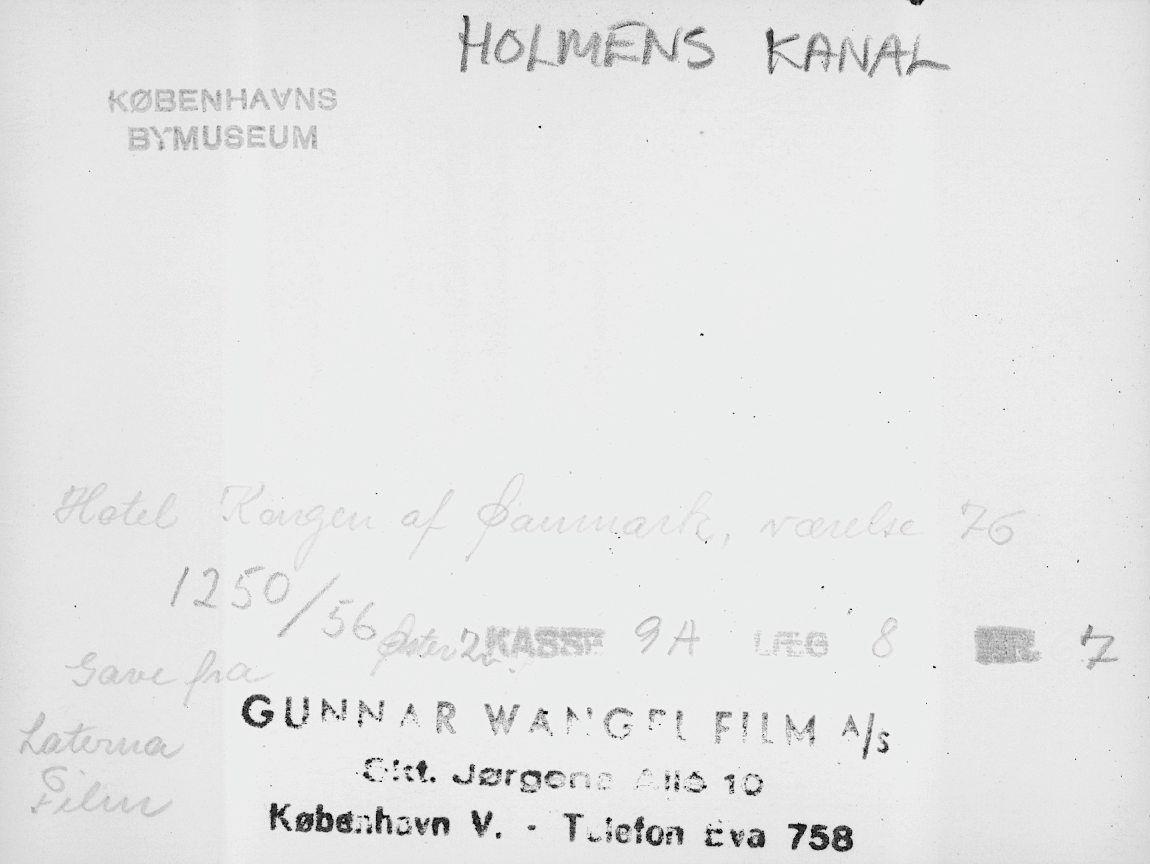 HOLMENS KANAL
KØBENHAVNS
BYMUSEUM
Hotel Kongen af Danmark, værelse 76
1250/56
KASSE 9A LÆG 8 NR. 7
Gave fra
Laterna
Film
GUNNAR WANGEL FILM A/S
Skt. Jørgens Allé 10
København V. - Telefon Eva 758